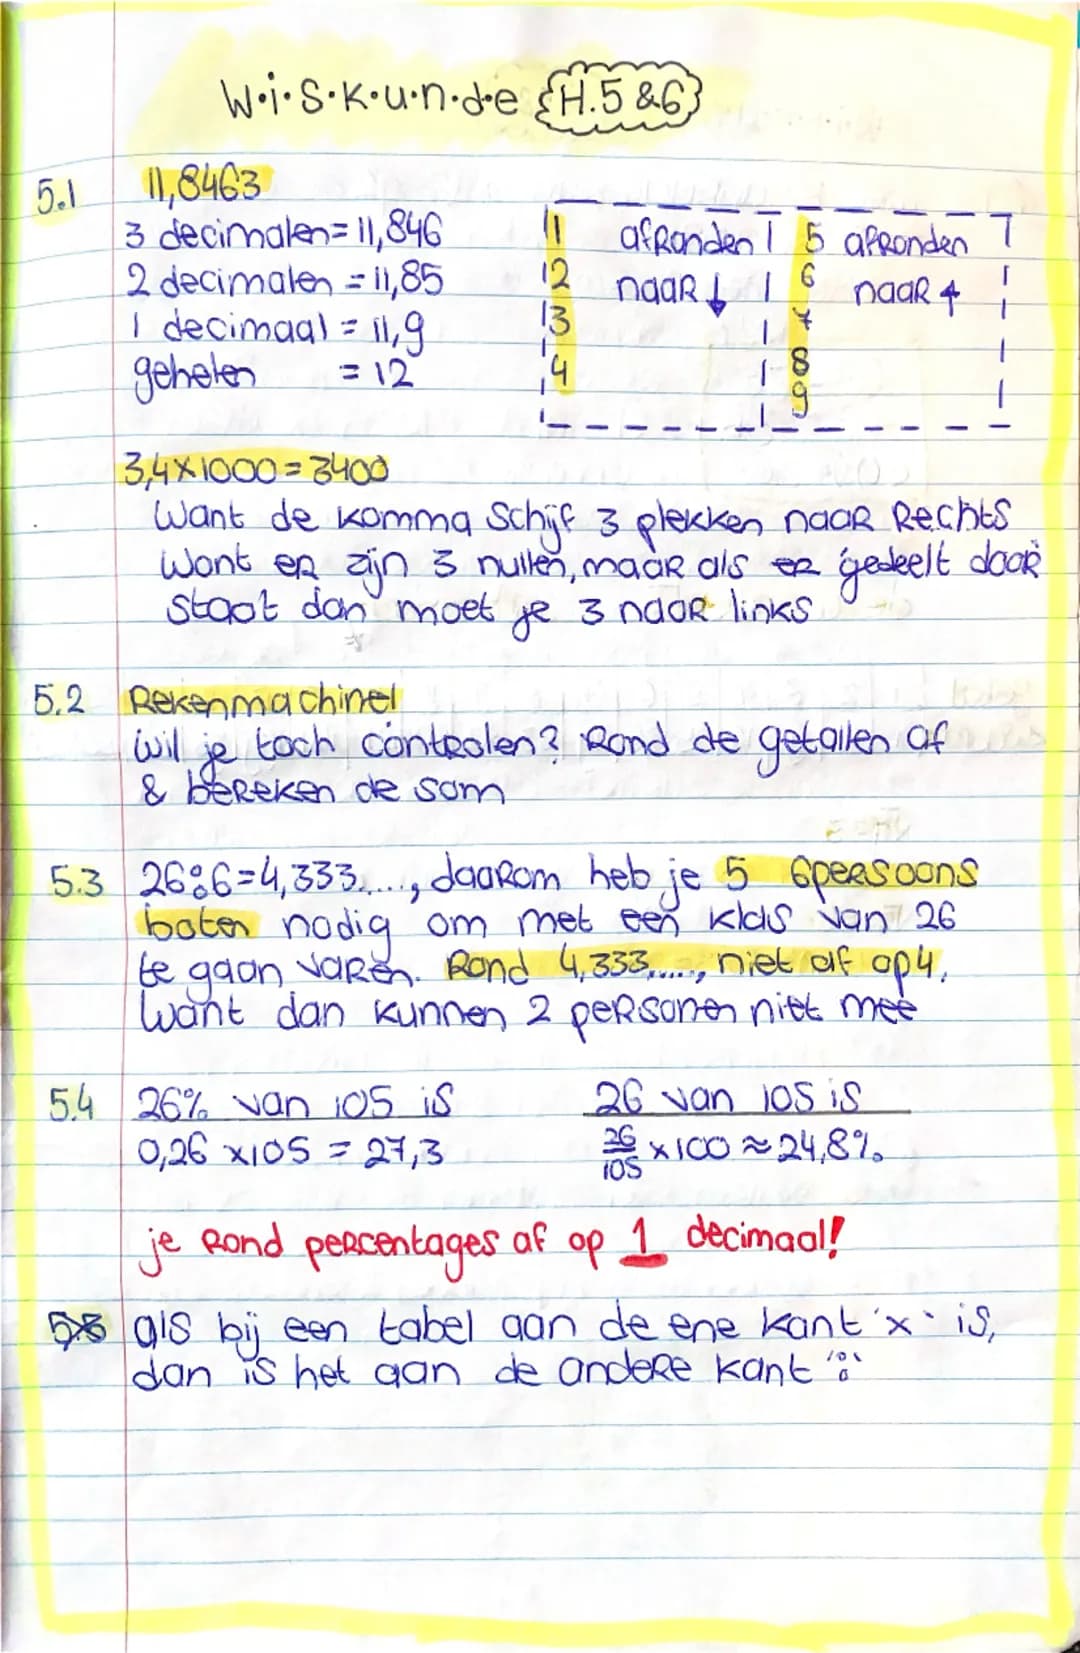 W·i·s·k·u·n·d·e H.5 &6
5.1 11,8463
3 decimalen= 11,846
2 decimalen = 11,85
1 decimaal = 11,9
gehelen = 12
1 afronden 5 afronden
2 naar ↓ 6 naar ↑
3 7
4 8
9
3,4×1000=3400
Want de komma schijf 3 plekken naar Rechts
Want er zijn 3 nullen, maar als er gedeelt door
staat dan moet je 3 naar links
5.2 Rekenmachine!
Wil je toch controlen? Rond de getallen af
& bereken de som
5.3 26:6=4,333...., daarom heb je 5 6persoons
boten nodig om met een klas van 26
te gaan varen. Rond 4,333....., niet af op 4,
Want dan kunnen 2 personen niet mee
5.4 26% van 105 is 26 van 105 is
0,26 ×105 = 27,3 26/105 ×100 ≈ 24,8%
je Rond percentages af op 1 decimaal!
als bij een tabel aan de ene kant 'x' is,
dan is het aan de andere kant ':'